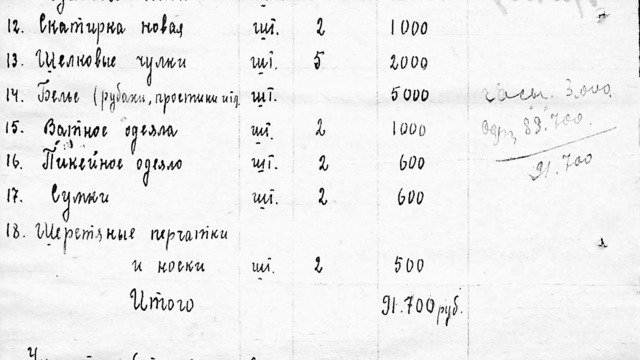 12. Скатирка новая шт. 2 1000
13. Шелковые чулки шт. 5 2000
14. Белье (рубахи, простики итд шт. 5000
15. Ватное одеяла шт. 2 1000
16. Пикейное одеяло шт. 2 600
17. Сумки шт. 2 600
18. Шерстяные перчатки
и носки шт. 2 500
Итого 91.700 руб.
часы. 3.000
88.700.
91.700